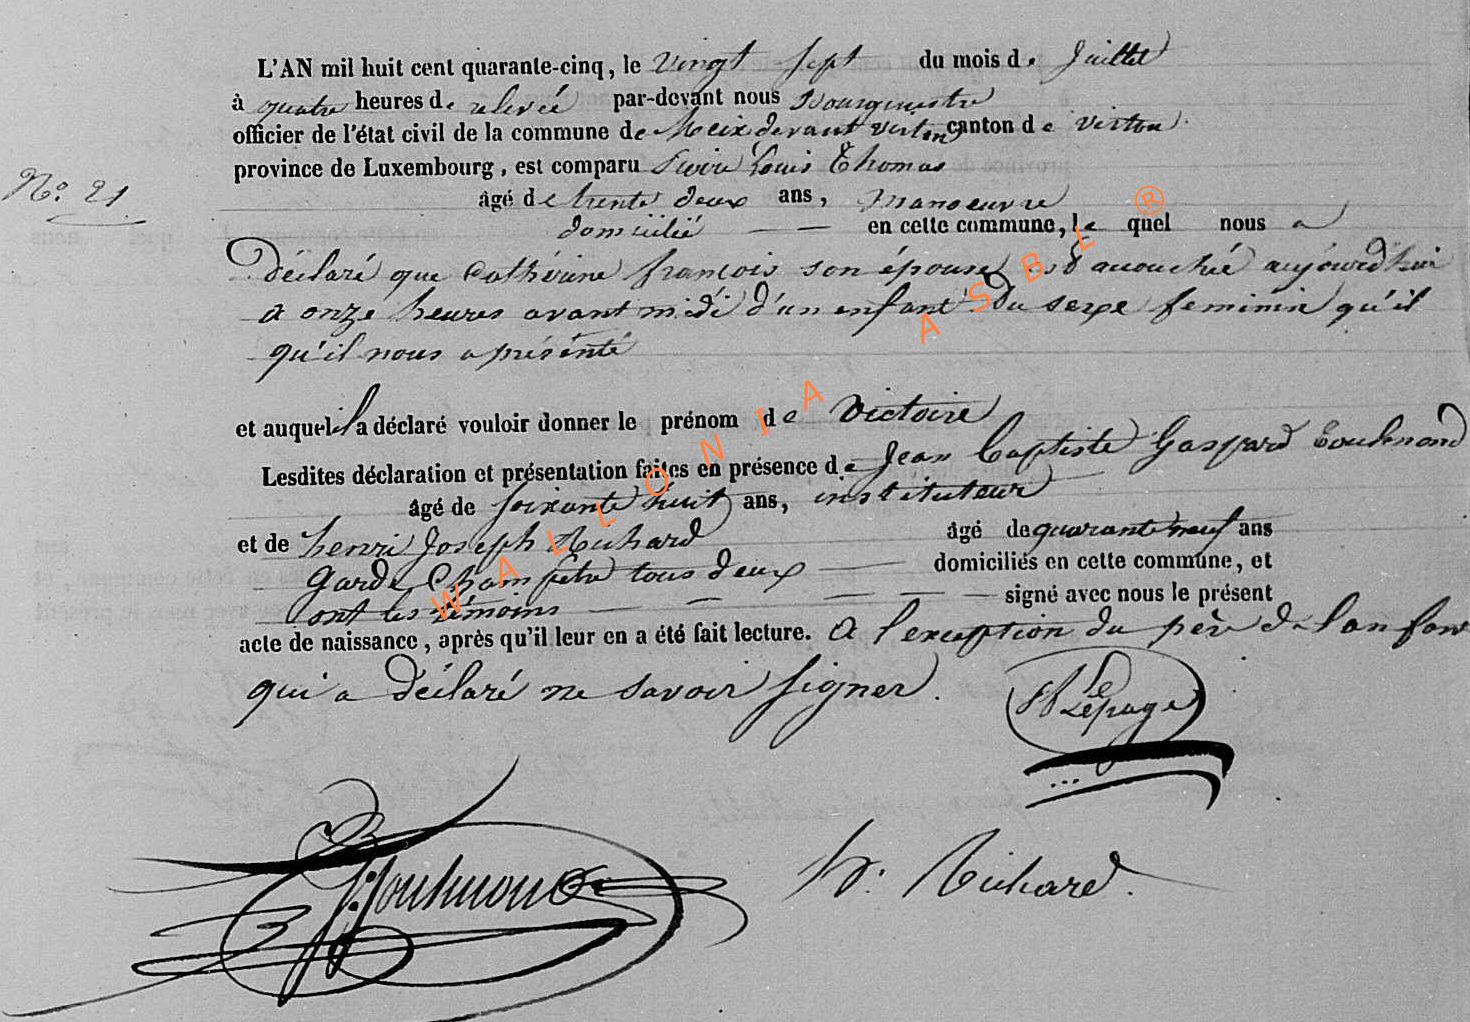 L'AN mil huit cent quarante-cinq, le vingt sept du mois de Juillet
à quatre heures de relevée par-devant nous Bourgmestre
officier de l'état civil de la commune de Meix devant virton canton de virton
province de Luxembourg, est comparu Louis Thomas
N.° 21
âgé de trente deux ans, manoeuvre
domicilié en cette commune, le quel nous a
Déclaré que Cathérine françois son épouse est accouchée aujourd'hui
a onze heures avant midi d'un enfant Du sexe feminin qu'il
qu'il nous a présenté
et auquel il a déclaré vouloir donner le prénom de Victoire
Lesdites déclaration et présentation faites en présence de Jean Baptiste Gaspard
âgé de soixante huit ans, instituteur
et de henri Joseph Richard âgé de quarante neuf ans
garde Champêtre tous deux domiciliés en cette commune, et
ont les témoins signé avec nous le présent
acte de naissance, après qu'il leur en a été fait lecture. A l'exception du père de l'enfant
qui a déclaré ne savoir signer.
Lepage
h. Richard.
WALLONIA ASBL ®